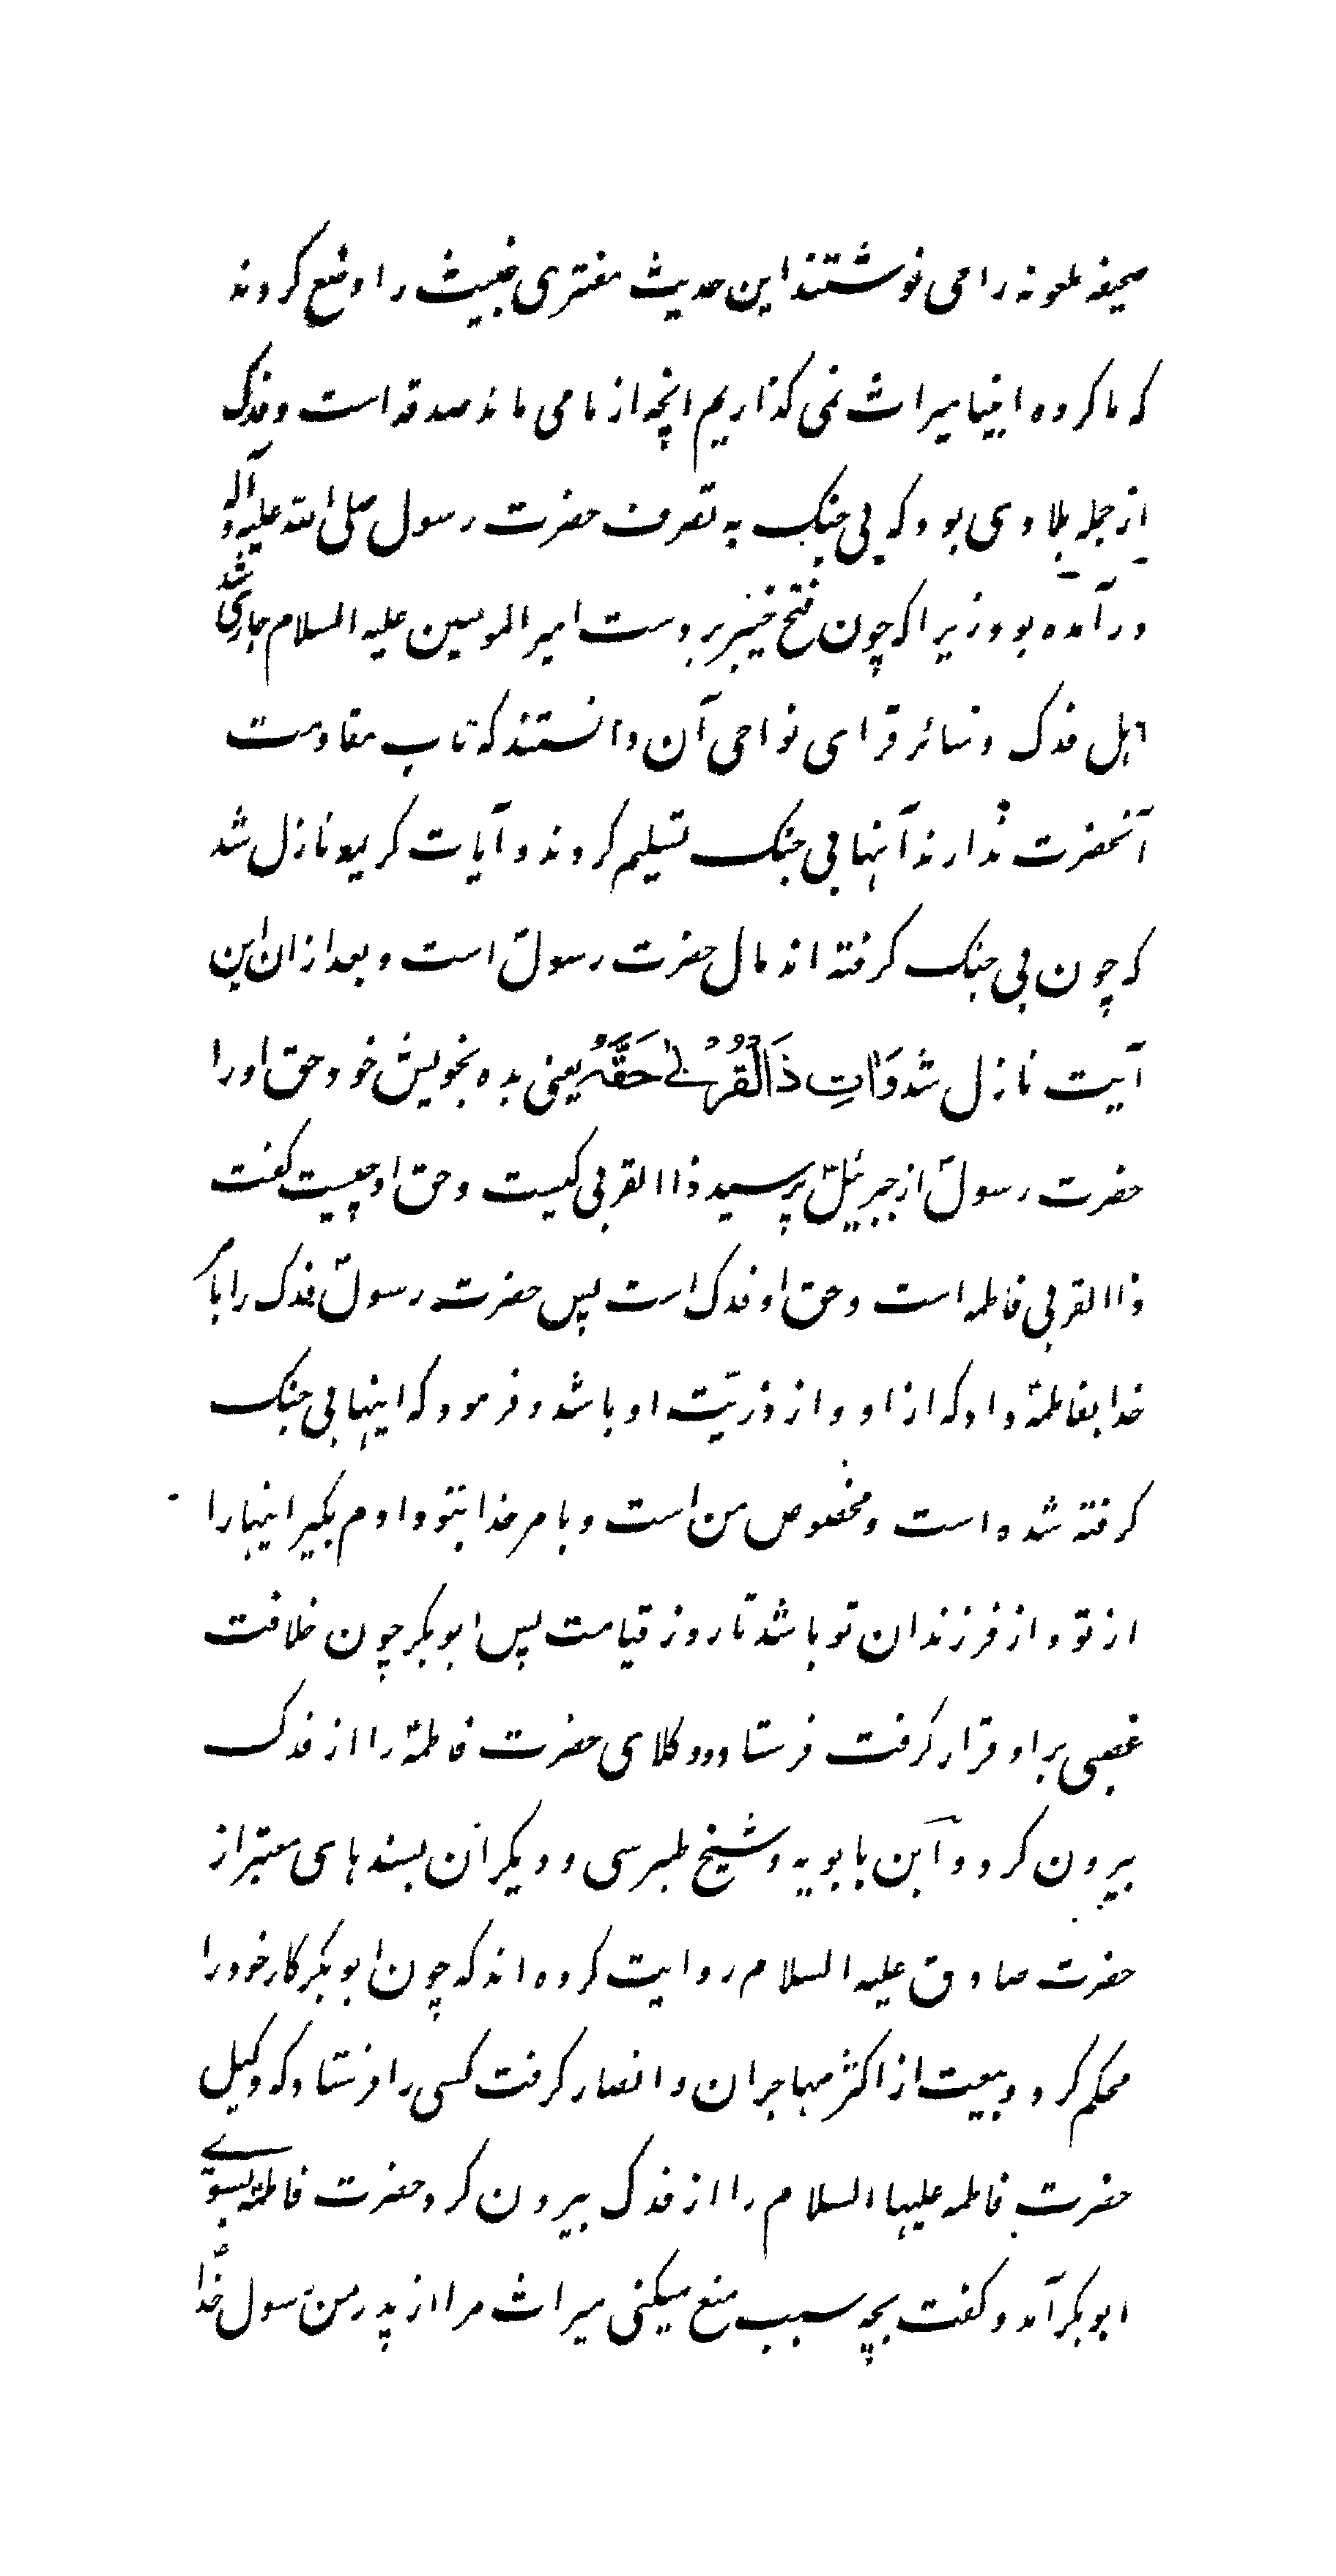 صحیفه ملعونه را می نوشتند این حدیث مفتری خبیث را وضع کردند
که ما کروه انبیا میراث نمی کذاریم انچه از ما می ماند صدقه است و فدک
از جمله بلادی بود که بی جنک به تصرف حضرت رسول صلی الله علیه و آله
در آمده بود زیرا که چون فتح خیبر بر دست امیر المومنین علیه السلام جاری شد
اهل فدک و سائر قرای نواحی آن دانستند که تاب مقاومت
آنحضرت ندارند آنها بی جنک تسلیم کردند و آیات کریمه نازل شد
که چون بی جنک کرفته اند مال حضرت رسولؐ است و بعد ازان این
آیت نازل شد وَاٰتِ ذَا الْقُرْبٰی حَقَّهُ یعنی بده بخویش خود حق او را
حضرت رسولؐ از جبرئیلؑ پرسید ذا القربی کیست و حق او چیست کفت
ذا القربی فاطمه است و حق او فدک است پس حضرت رسولؐ فدک را بامر
خدا بفاطمهؑ داد که از او و از ذریّت او باشد و فرمود که اینها بی جنک
کرفته شده است و مخصوص من است و بامر خدا بتو دادم بکیر اینها را
از تو و از فرزندان تو باشد تا روز قیامت پس ابو بکر چون خلافت
غصبی بر او قرار کرفت فرستاد و وکلای حضرت فاطمهؑ را از فدک
بیرون کرد و آبن بابویه و شیخ طبرسی و دیکران بسندهای معتبر از
حضرت صادق علیه السلام روایت کرده اند که چون ابو بکر کار خود را
محکم کرد و بیعت از اکثر مهاجران و انصار کرفت کسی را فرستاد که وکیل
حضرت فاطمه علیها السلام را از فدک بیرون کرد حضرت فاطمهؑ بسوے
ابو بکر آمد و کفت بچه سبب منع میکنی میراث مرا از پدر من رسول خداؐ